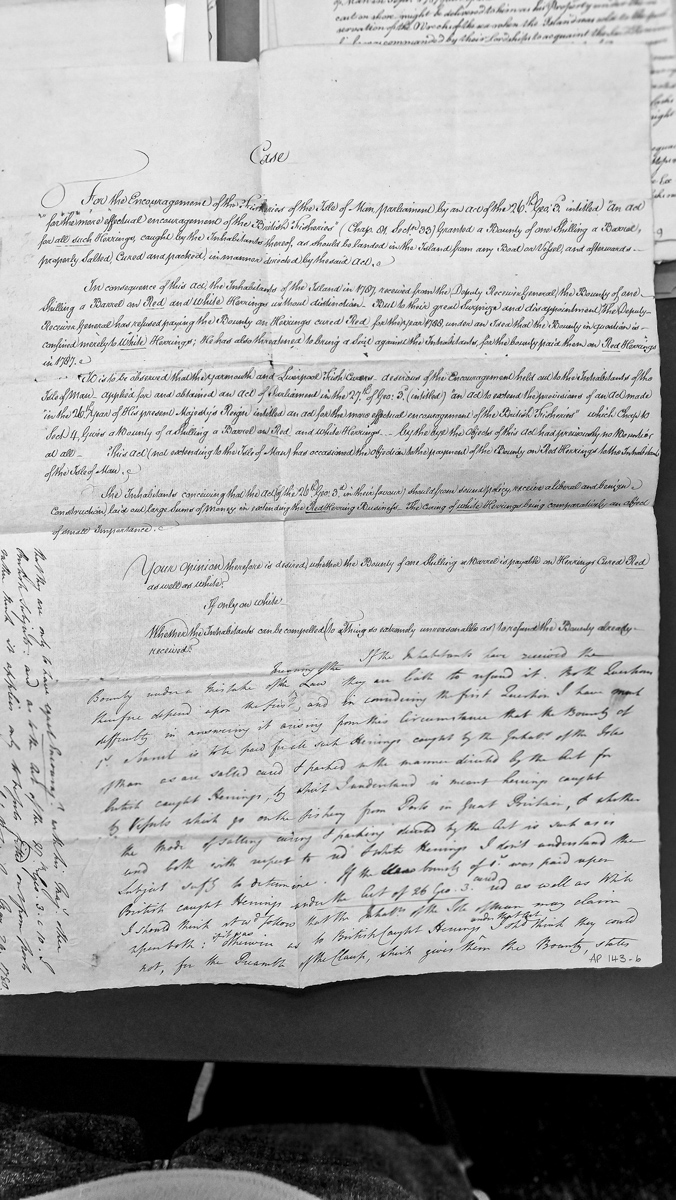 Case
For the Encouragement of the Fisheries of the Isle of Man parliament by an act of the 26.th Geo: 3. intitled "An act
"for the more effectual encouragement of the British Fisheries" (Chap. 81. Sectn 33) Granted a Bounty of one Shilling a Barrel,
for all such Herrings, caught by the Inhabitants thereof, as should be landed in the Island from any Boat or Vessel, and afterwards
properly Salted Cured and packed, in manner directed by the said Act.
In consequence of this Act, the Inhabitants of the Island in 1787, received from the Deputy Receiver General, the Bounty of one
Shilling a Barrel on Red and White Herrings without distinction. But to their great surprize and disappointment, the Deputy
Receiver General has refused paying the Bounty on Herrings cured Red for the year 1788, under an Idea that the Bounty in question is
confined merely to White Herrings; He has also threatened to bring a Suit against the Inhabitants for the bounty paid them on Red Herrings
in 1787.
It is to be observed that the Yarmouth and Liverpool Fish Curers desirous of the Encouragement held out to the Inhabitants of the
Isle of Man applied for and obtained an Act of Parliament in the 27.th of Geo: 3. (intitled) an act to extend the provisions of an Act made
"in the 26th year of His present Majesty's Reign intitled an act for the more effectual encouragement of the British Fisheries" which Chap: 10
Sect 4, Gives a Bounty of a Shilling a Barrel on Red and White Herrings by the bye the objects of this Act had previously no Bounties
at all This Act (not extending to the Isle of Man) has occasioned the objection to the payment of the Bounty on Red Herrings to the Inhabitants
of the Isle of Man.
The Inhabitants conceiving that the Act (of the 26th Geo: 3d in their favour) should from sound policy, receive a liberal and benign
Construction, laid out large Sums of Money in extending the Red Herring Business The curing of white Herrings being comparatively an object
of small Importance.
Your opinion therefore is desired, whether the Bounty of one Shilling a Barrel is payable on Herrings Cured Red
as well as white?
If only on white
Whether the Inhabitants can be compelled (to a thing so extremely unreasonable as) to refund the Bounty already
received?
If the Inhabitants have received the
Bounty under a mistake of the Law they are liable to refund it. Both Questions
therefore depend upon the first, and in considering the first Question I have much
difficulty in answering it arising from this Circumstance that the Bounty of
1s. a barrel is to be paid for all such Herrings caught by the Inhabts of the Isle
of Man as are salted cured & packed in the manner directed by the Act for
British caught Herrings, by which I understand is meant herrings caught
by Vessels which go on the fishery from Ports in Great Britain, & whether
the Mode of salting curing & packing directed by the Act is such as is
used both with respect to red & white Herrings I don't understand the
subject suffly to determine. If the bounty of 1s. was paid upon
British caught Herrings under the Act of 26 Geo. 3. cured red as well as white
I should think it wd follow that the Inhabts of the Isle of Man may claim
upon both: if it was otherwise as to British Caught Herrings under that Act, I shd think they could
not, for the of the Clause, which gives them the Bounty, states
that they are only to have equal Encouragt with his Majs other
British Subjects and as to the Act of the 27th Geo. 3. c. 10. I
AP 143-6